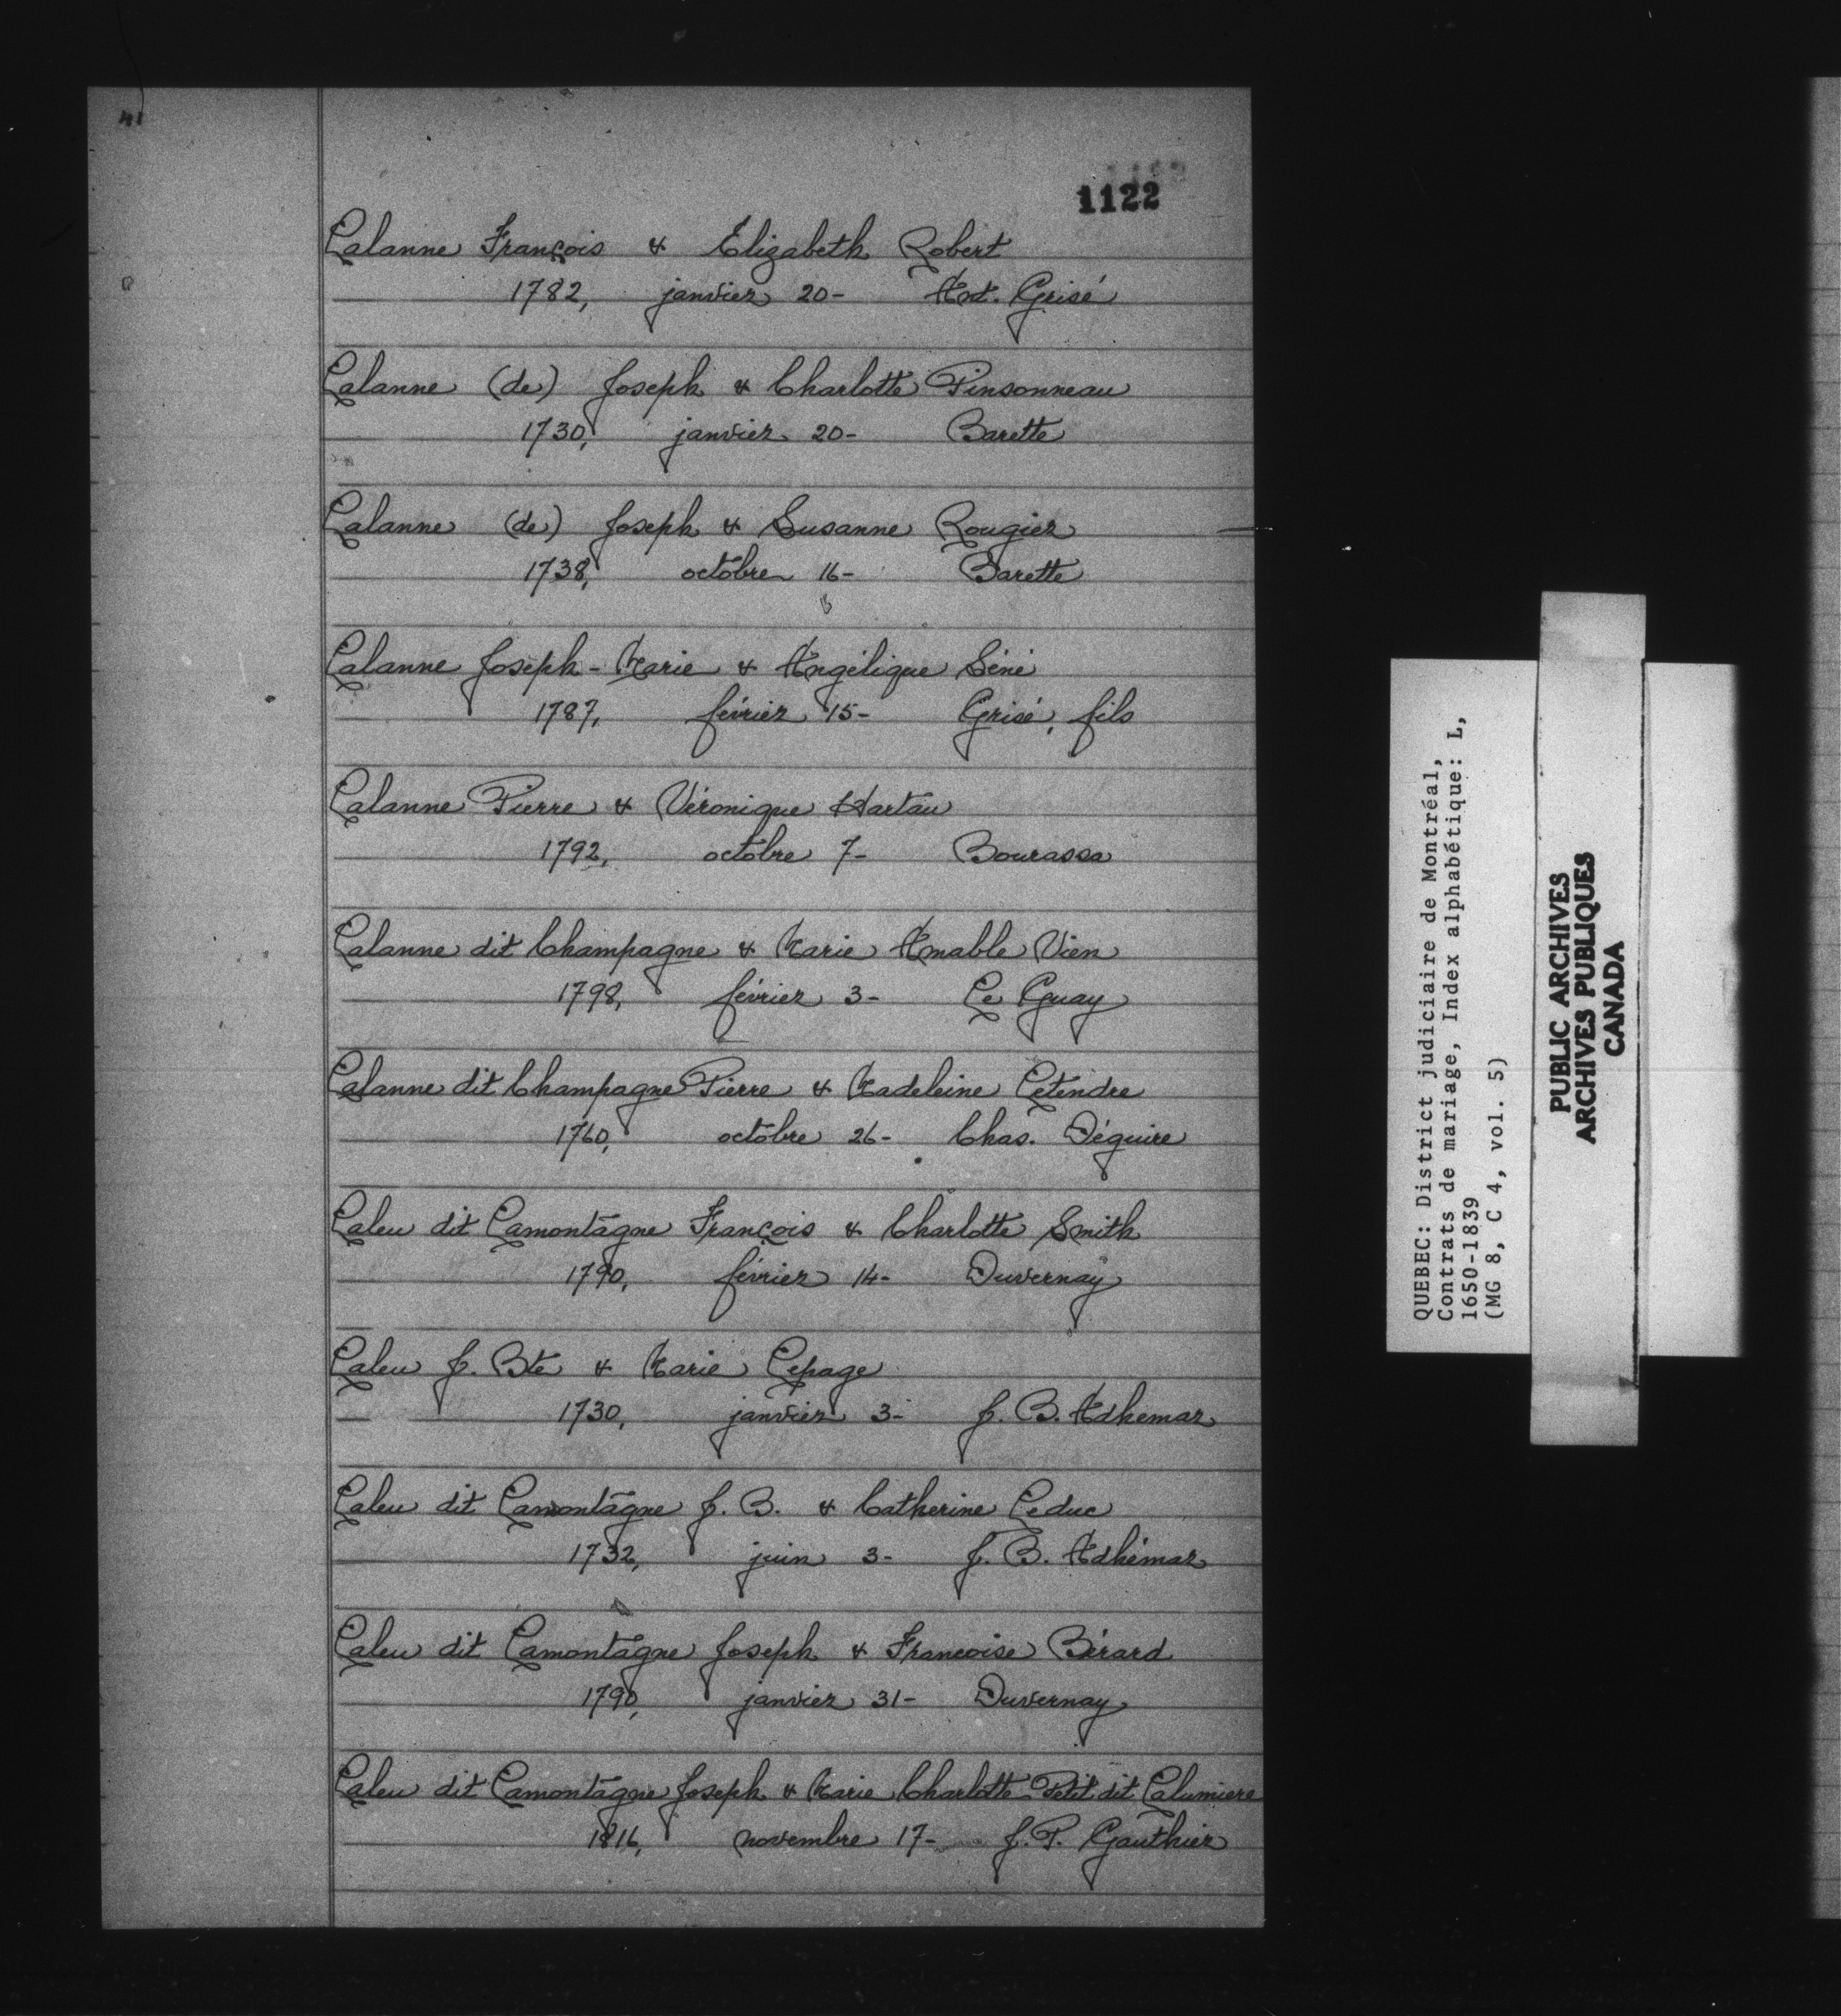 41
1122
Lalanne François & Elizabeth Robert
1782, janvier 20- Ant. Grisé
Lalanne (de) Joseph & Charlotte Pinsonneau
1730, janvier 20- Barette
Lalanne (de) Joseph & Susanne Rougier
1738, octobre 16- Barette
Lalanne Joseph-Marie & Angélique Séné
1787, février 15- Grisé, fils
Lalanne Pierre & Véronique Hartau
1792, octobre 7- Bourassa
Lalanne dit Champagne & Marie Amable Vien
1798, février 3- Le Guay
Lalanne dit Champagne Pierre & Madeleine Letendre
1760, octobre 26- Chas. Déguire
Laleu dit Lamontagne François & Charlotte Smith
1790, février 14- Duvernay
Laleu J. Bte & Marie Lepage
1730, janvier 3- J. B. Adhemar
Laleu dit Lamontagne J. B. & Catherine Leduc
1732, juin 3- J. B. Adhémar
Laleu dit Lamontagne Joseph & Francoise Bérard
1790, janvier 31- Duvernay
Laleu dit Lamontagne Joseph & Marie Charlotte Petit dit Lalumiere
1816, novembre 17- J. P. Gauthier
QUEBEC: District judiciaire de Montréal,
Contrats de mariage, Index alphabétique: L,
1650-1839
(MG 8, C 4, vol. 5)
PUBLIC ARCHIVES
ARCHIVES PUBLIQUES
CANADA